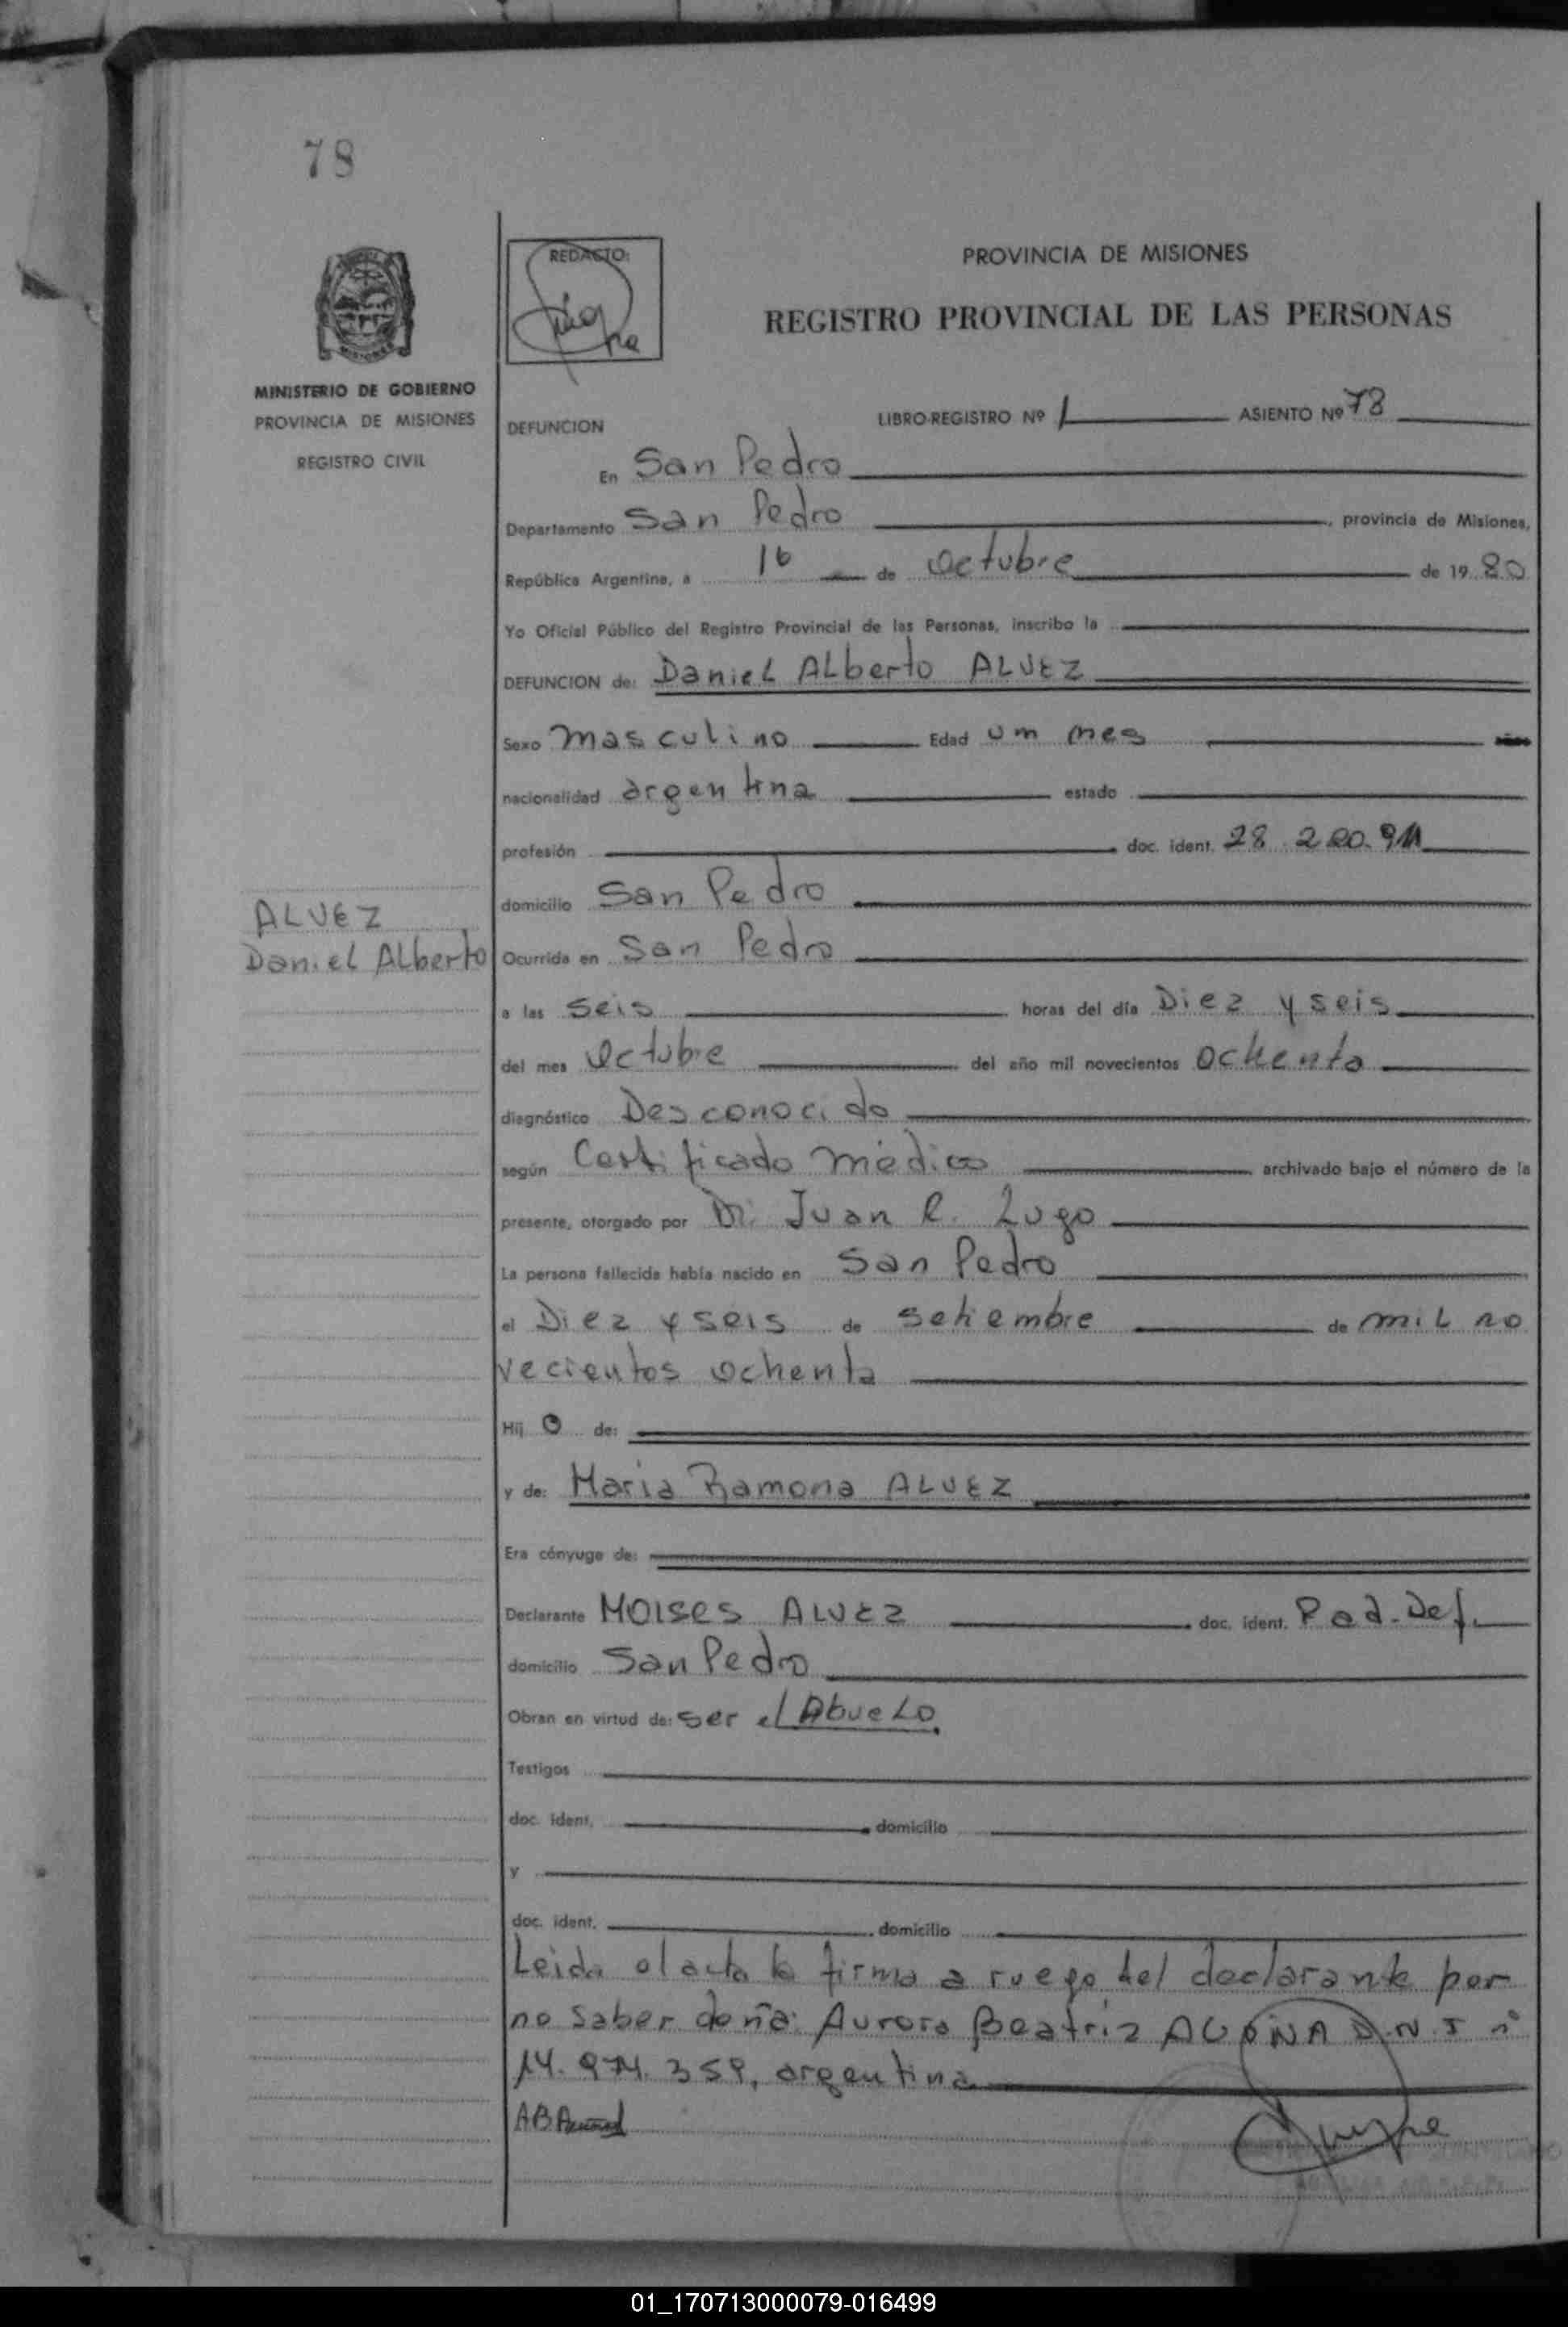 78
REDACTO:
PROVINCIA DE MISIONES
REGISTRO PROVINCIAL DE LAS PERSONAS
MINISTERIO DE GOBIERNO
PROVINCIA DE MISIONES
REGISTRO CIVIL
DEFUNCION
LIBRO-REGISTRO Nº 1 ASIENTO Nº 78
En San Pedro
Departamento San Pedro, provincia de Misiones,
República Argentina, a 16 de Octubre de 1980
Yo Oficial Público del Registro Provincial de las Personas, inscribo la
DEFUNCION de: Daniel ALberto ALVEZ
Sexo masculino Edad um mes
nacionalidad argentina estado
profesión doc. ident. 28.220.911
domicilio San Pedro
ALVEZ
Daniel ALberto
Ocurrida en San Pedro
a las seis horas del día Diez y seis
del mes Octubre del año mil novecientos ochenta
diagnóstico Desconocido
según Certificado médico archivado bajo el número de la
presente, otorgado por Dr. Juan R. Lugo
La persona fallecida había nacido en San Pedro
el Diez y seis de setiembre de mil no
vecientos ochenta
Hij o de:
y de: Maria Ramona ALVEZ
Era cónyuge de:
Declarante MOISES ALVEZ doc. ident. Ped. Def.
domicilio San Pedro
Obran en virtud de: ser el Abuelo.
Testigos
doc. ident. domicilio
y
doc. ident. domicilio
Leida el acta la firma a ruego del declarante por
no saber doña: Aurora Beatriz ACUÑA D.N.I nº
14.974.359, argentina
01_170713000079-016499